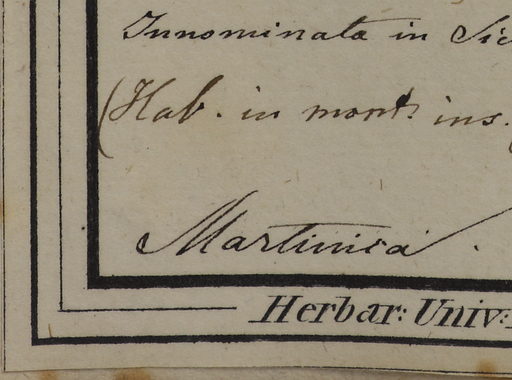 Innominata in Sic
(Hab. in mont. ins.
Martinica.
Herbar: Univ: